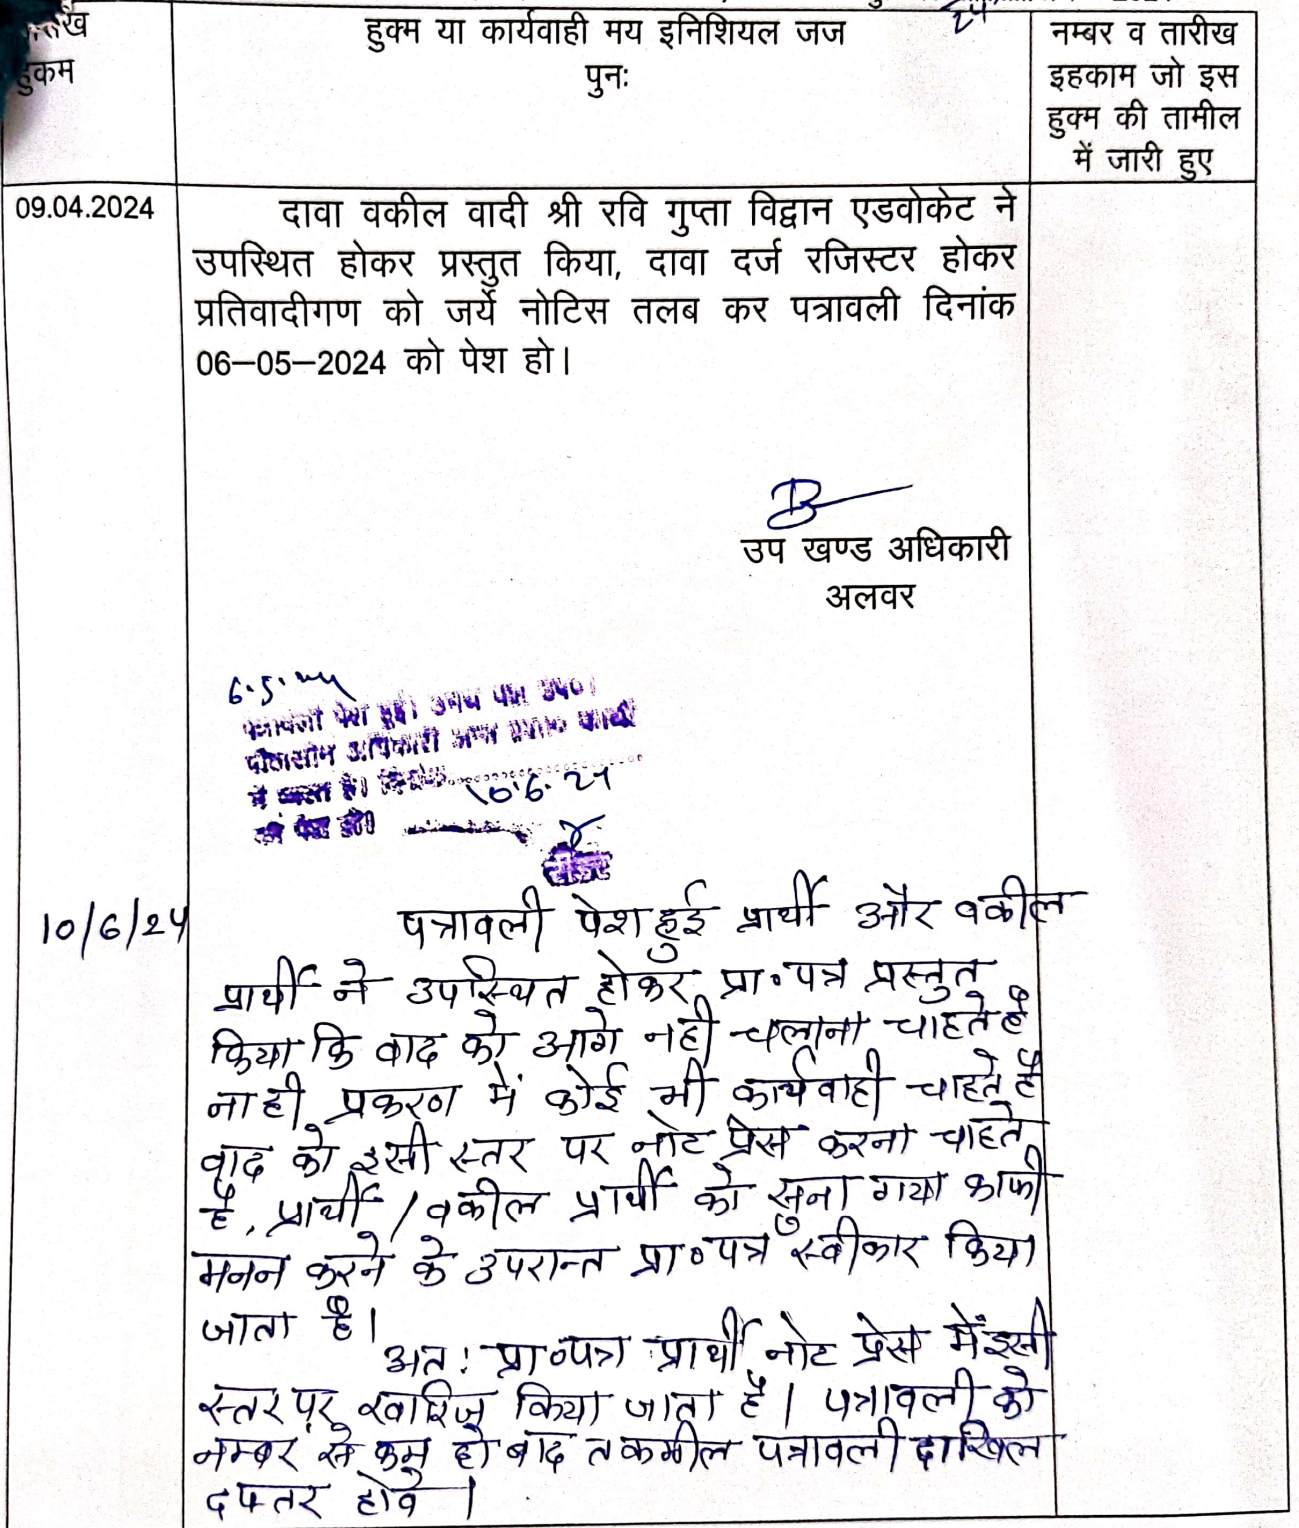 हुकम
हुक्म या कार्यवाही मय इनिशियल जज
पुनः
24
नम्बर व तारीख
इहकाम जो इस
हुक्म की तामील
में जारी हुए
09.04.2024
दावा वकील वादी श्री रवि गुप्ता विद्वान एडवोकेट ने
उपस्थित होकर प्रस्तुत किया, दावा दर्ज रजिस्टर होकर
प्रतिवादीगण को जर्ये नोटिस तलब कर पत्रावली दिनांक
06–05–2024 को पेश हो।
उप खण्ड अधिकारी
अलवर
पत्रावली पेश हुई। उभय पक्ष उप०।
पीठासीन अधिकारी अन्य कार्यो
में व्यस्त है। दिनांक 10.6.24
को पेश हो।
10/6/24
पत्रावली पेश हुई प्रार्थी और वकील
प्रार्थी ने उपस्थित होकर प्रा०पत्र प्रस्तुत
किया कि वाद को आगे नही चलाना चाहते है
ना ही प्रकरण में कोई भी कार्यवाही चाहते है
वाद को इसी स्तर पर नोट प्रेस करना चाहते
है, प्रार्थी / वकील प्रार्थी को सुना गया काफी
मनन करने के उपरान्त प्रा०पत्र स्वीकार किया
जाता है।
अतः प्रा०पत्र प्रार्थी नोट प्रेस में इसी
स्तर पर खारिज किया जाता है। पत्रावली को
नम्बर से कम हो बाद तकमील पत्रावली दाखिल
दफ्तर होवे।